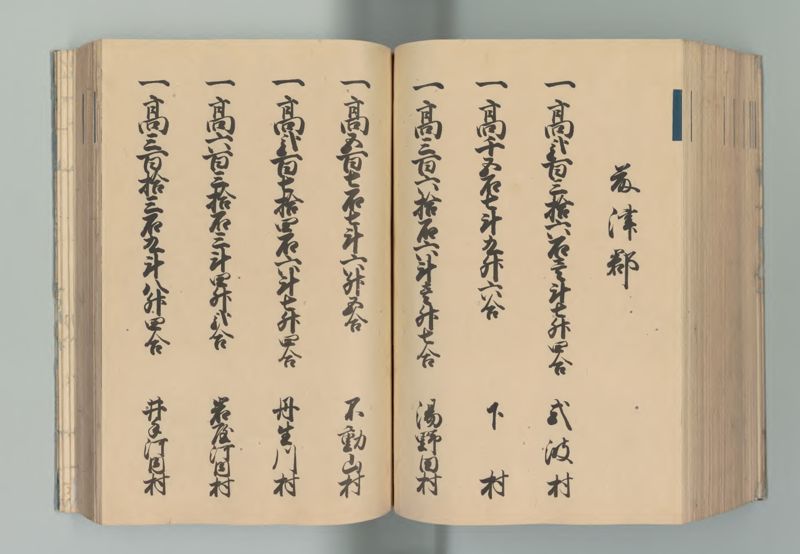 藤津郡
一高弐百三拾六石壱斗七升四合 式波村
一高十五石七斗九升六合 下村
一高三百六拾石六斗壱升七合 湯野田村
一高五百七石七斗六升五合 不動山村
一高弐百七拾四石六斗七升四合 丹生川村
一高六百三拾石三斗四升弐合 岩屋河内村
一高三百拾三石九斗八升四合 井手河内村